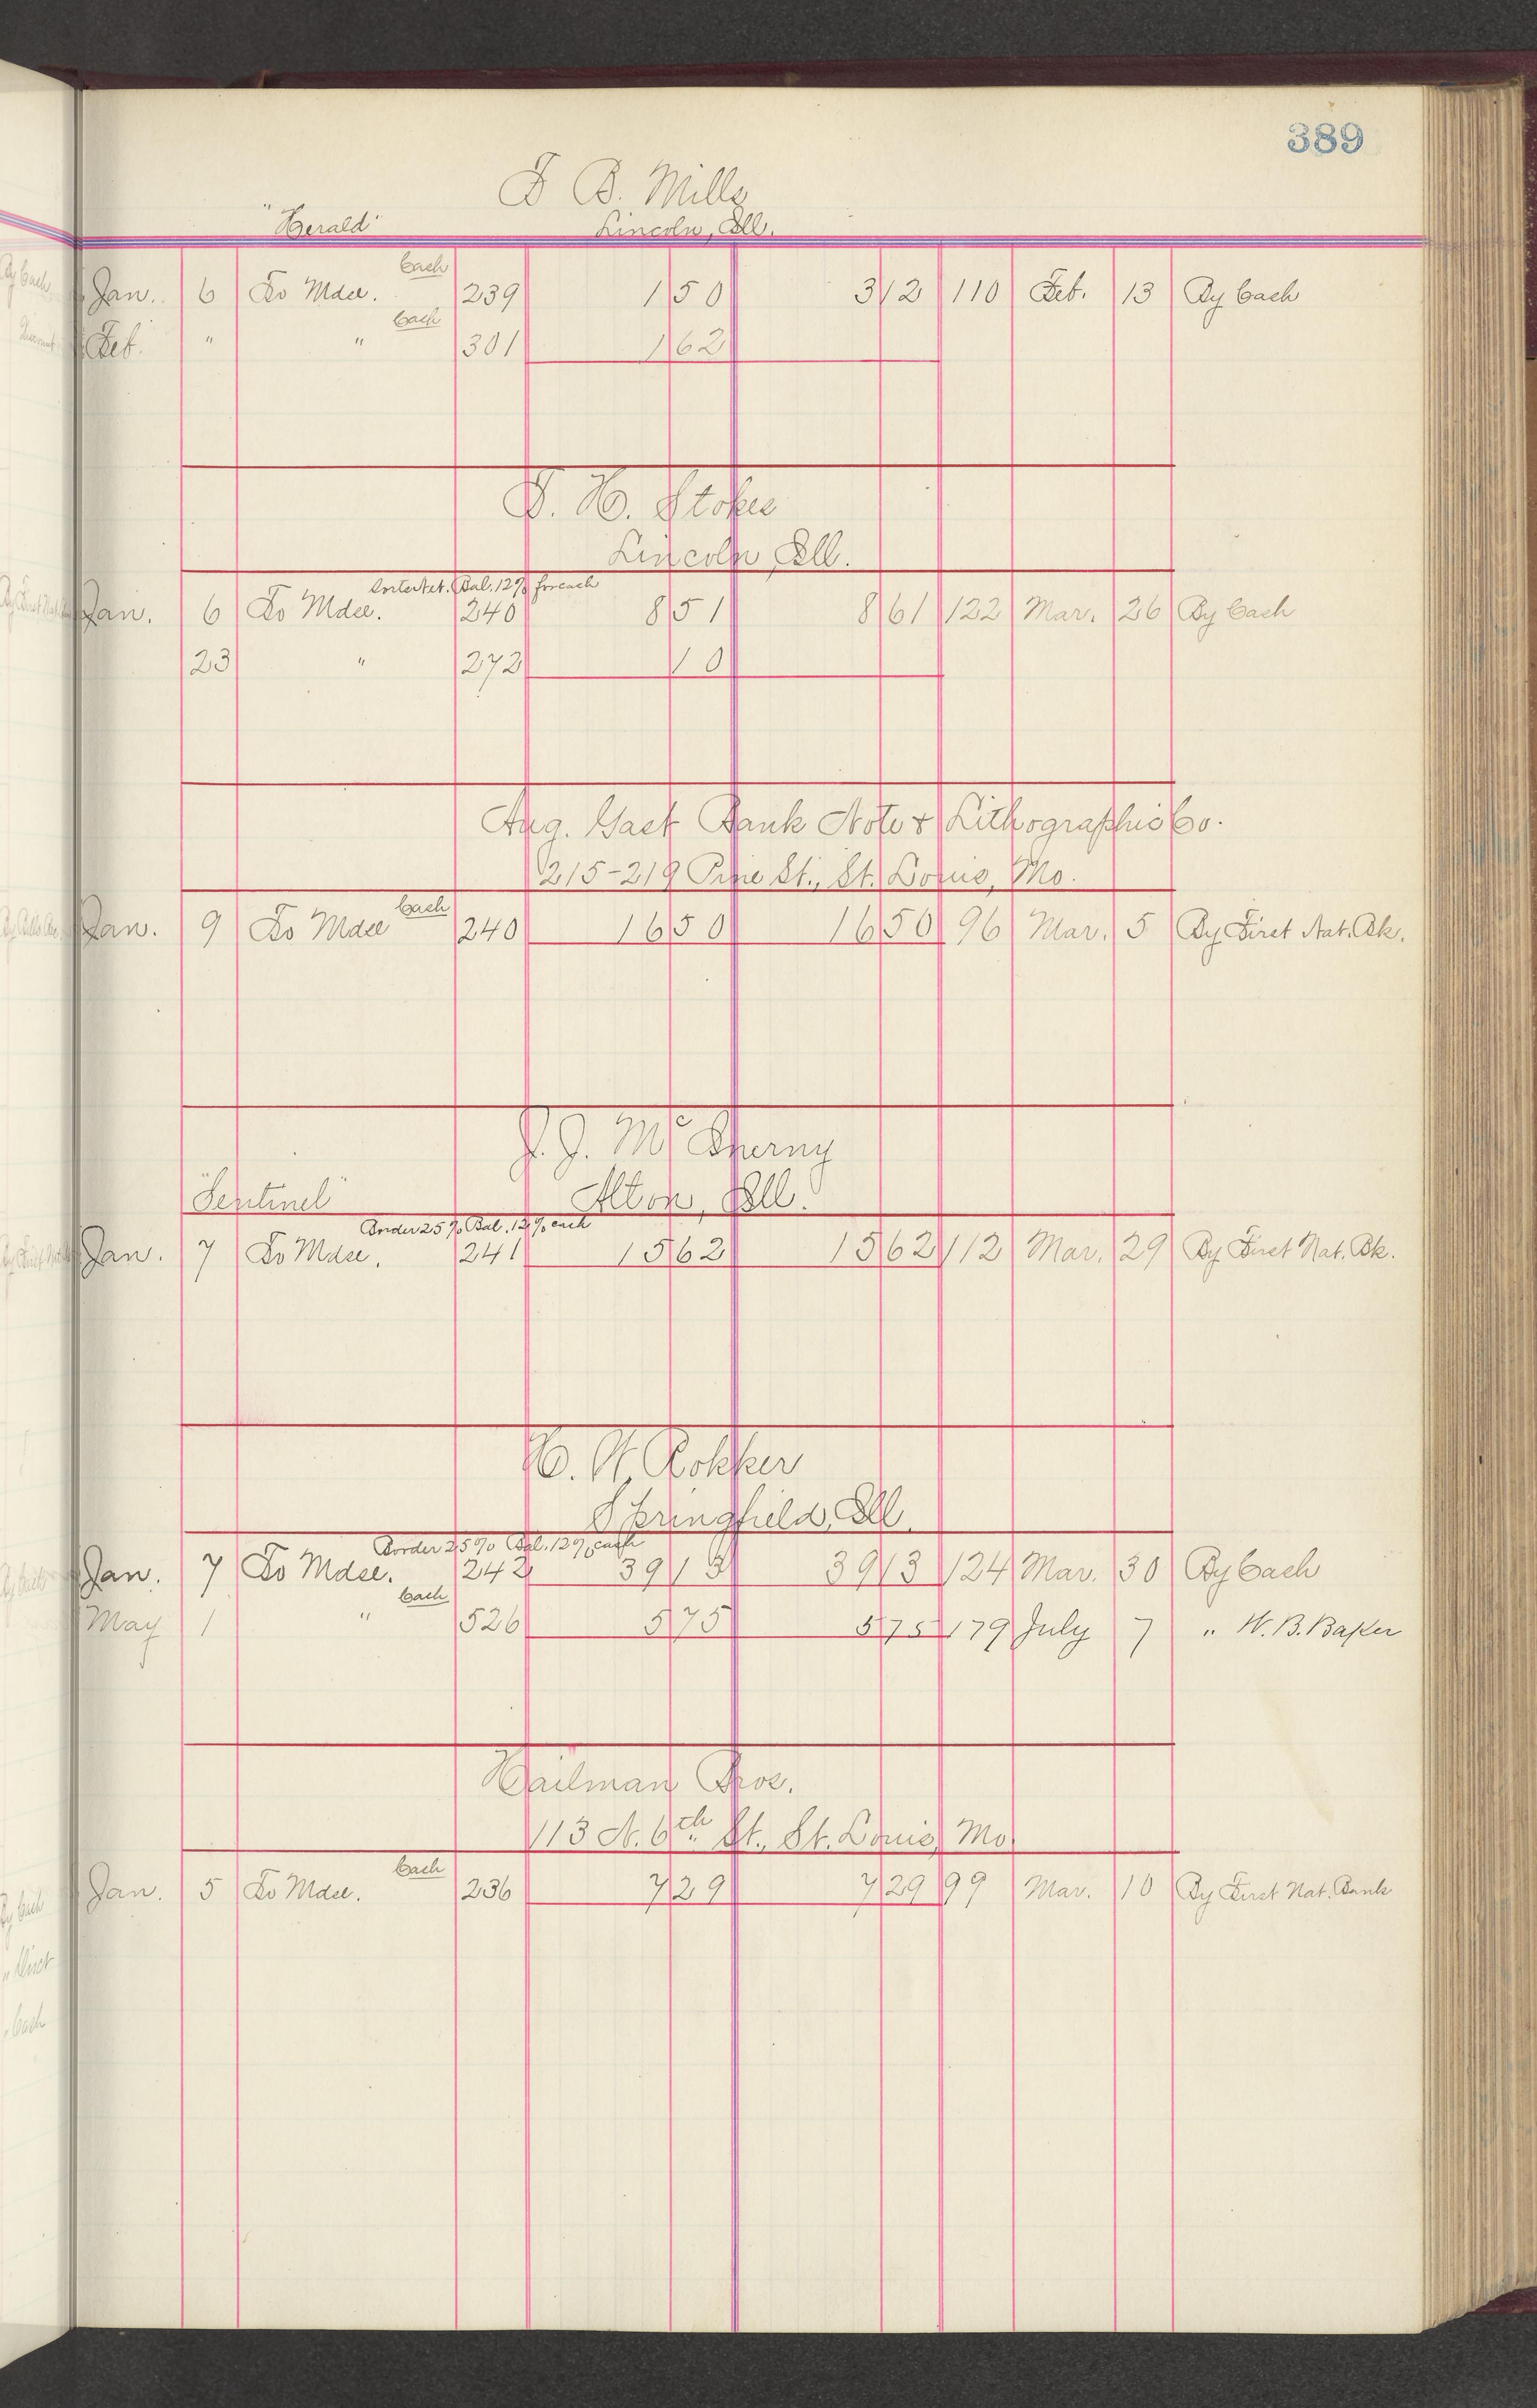 389
F B. Mills
"Herald" Lincoln, Ill.
Cash
Jan. 6 To Mdse. 239 1 50 3 12 110 Feb. 13 By Cash
Cash
Feb. " " 301 1 62
F. H. Stokes
Lincoln Ill.
Bal. 12% for cash
Jan. 6 To Mdse. 240 8 51 8 61 122 Mar. 26 By Cash
23 " 272 10
Aug. Gast Bank Note & Lithographic Co.
215-219 Pine St., St. Louis, Mo.
Cash
Jan. 9 To Mdse 240 16 50 16 50 96 Mar. 5 By First Nat. Bk.
J. J. McInerny
"Sentinel" Alton, Ill.
Border 25% Bal. 12% cash
Jan. 7 To Mdse. 241 15 62 15 62 112 Mar. 29 By First Nat. Bk.
H. W. Rokker
Springfield, Ill.
Border 25% Bal. 12% cash
Jan. 7 To Mdse. 242 39 13 39 13 124 Mar. 30 By Cash
Cash
May 1 " 526 5 75 5 75 179 July 7 " W. B. Baker
Hailman Bros.
113 N. 6th St., St. Louis, Mo.
Cash
Jan. 5 To Mdse. 236 7 29 7 29 99 Mar. 10 By First Nat. Bank